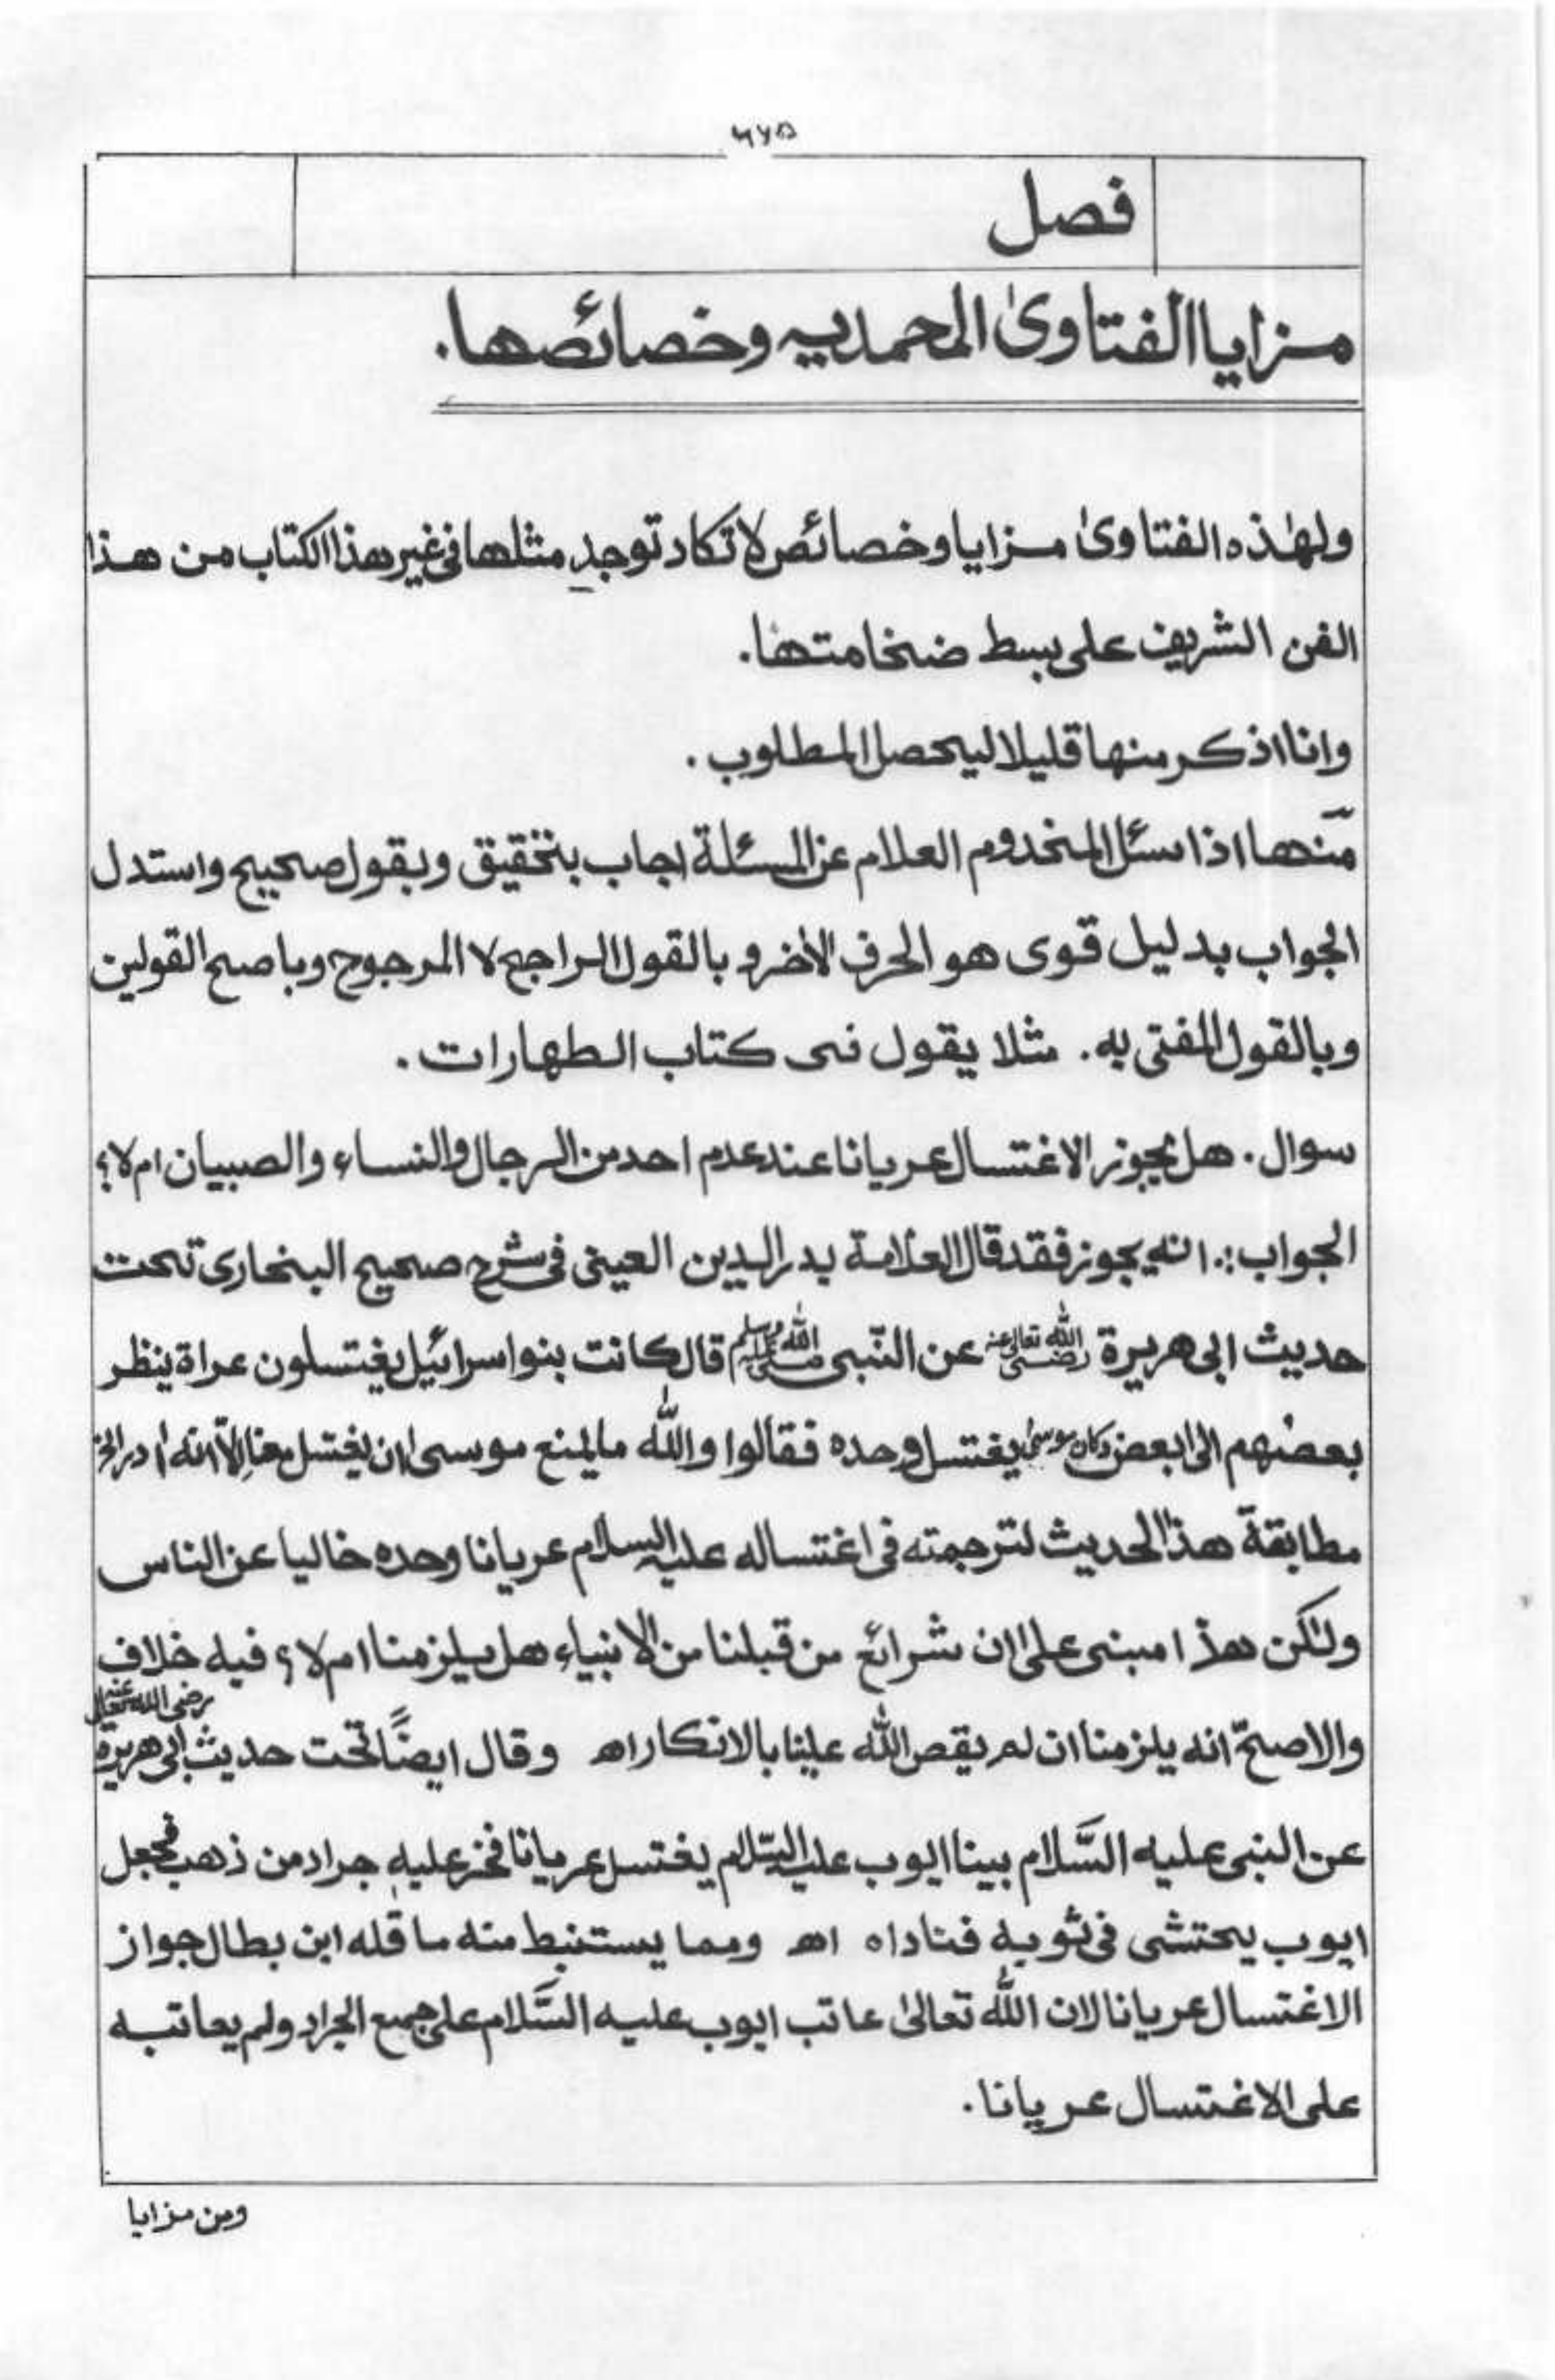 ٦٧٥
فصل
مزايا الفتاوىٰ المحمديه وخصائصها.
ولهٰذه الفتاوىٰ مزايا وخصائص لا تكاد توجد مثلها فى غير هذا الكتاب من هذا
الفن الشريف على بسط ضخامتها.
وانا اذكر منها قليلا ليحصل المطلوب.
منّها اذا سئل المخدوم العلام عن المسئلة اجاب بتحقيق وبقول صحيح واستدل
الجواب بدليل قوى هو الحرف الأخر و بالقول الراجح لا المرجوح وباصح القولين
وبالقول المفتى به. مثلا يقول فى كتاب الطهارات.
سوال. هل يجوز الاغتسال عريانا عند عدم احد من الرجال والنساء والصبيان ام لا؟
الجواب:. انه يجوز فقد قال العلامة بدر الدين العينى فى شرح صحيح البخارى تحت
حديث ابى هريرة رضى الله تعالى عنه عن النّبى صلى الله عليه وسلم قال كانت بنو اسرائيل يغتسلون عراة ينظر
بعضهم الى بعض وكان موسىٰ يغتسل وحده فقالوا والله ما يمنع موسى ان يغتسل معنا الّا انه اٰدر الخ
مطابقة هذا الحديث لترجمته فى اغتساله عليه السلام عريانا وحده خاليا عن الناس
ولٰكن هذا مبنى على ان شرائع من قبلنا من الانبياء هل يلزمنا ام لا؟ فيه خلاف
والاصحّ انه يلزمنا ان لم يقص الله علينا بالانكار اھ وقال ايضًا تحت حديث ابى هريرة رضى الله تعالى عنه
عن النبى عليه السَّلام بينا ايوب عليه السّلام يغتسل عريانا فخر عليه جراد من ذهب فجعل
ايوب يحتشى فى ثوبه فناداه اھ ومما يستنبط منه ما قله ابن بطال جواز
الاغتسال عريانا لان الله تعالىٰ عاتب ايوب عليه السَّلام على جمع الجراد ولم يعاتبه
على الاغتسال عريانا.
ومن مزايا